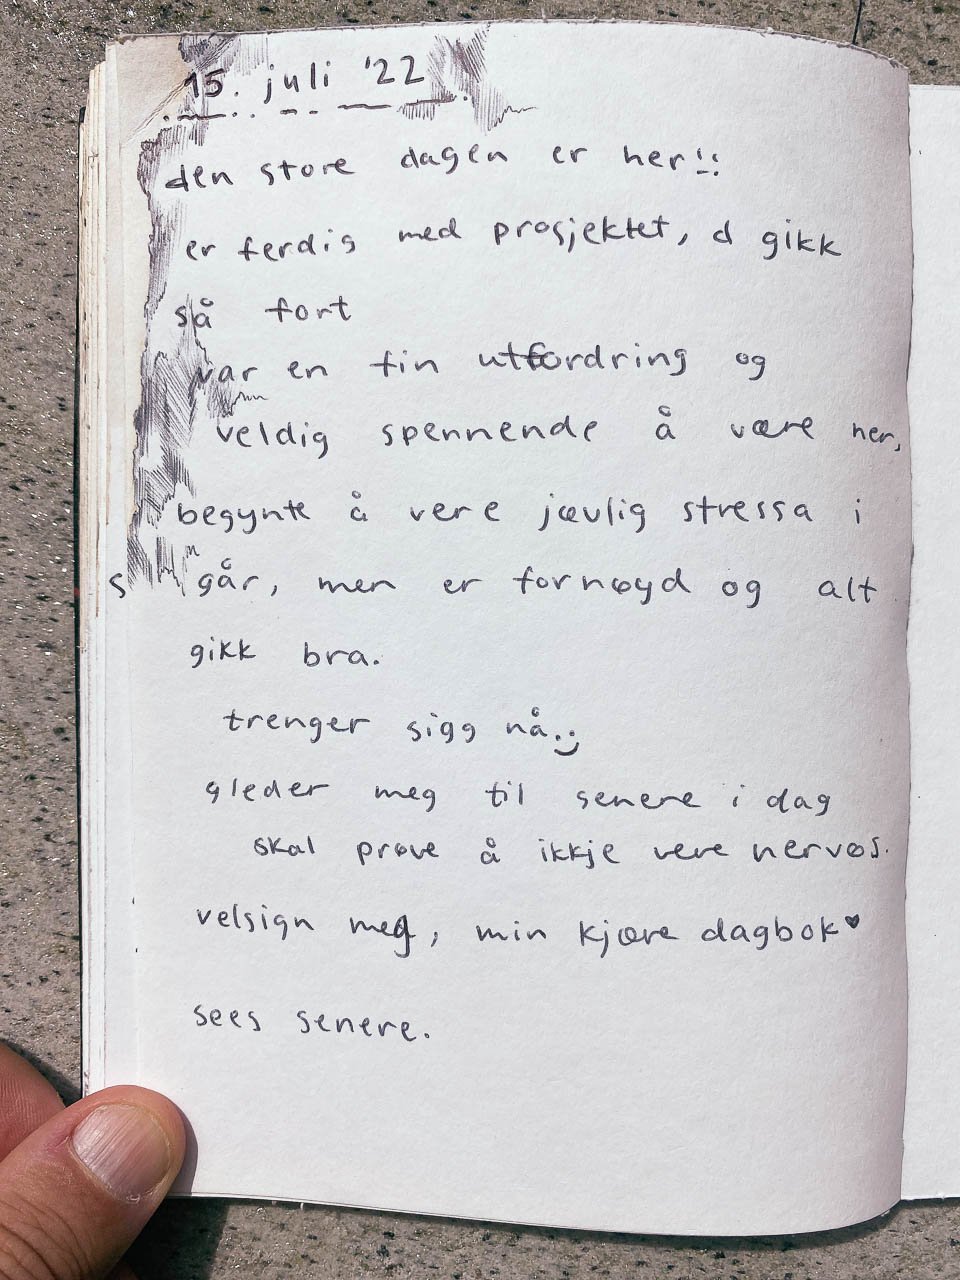 15. juli '22
den store dagen er her!!
er ferdig med prosjektet, d gikk
så fort
var en fin utfordring og
veldig spennende å være her,
begynte å vere jævlig stressa i
går, men er fornøyd og alt
gikk bra.
trenger sigg nå :)
gleder meg til senere i dag
skal prøve å ikkje vere nervøs.
velsign meg, min kjære dagbok ♥
sees senere.